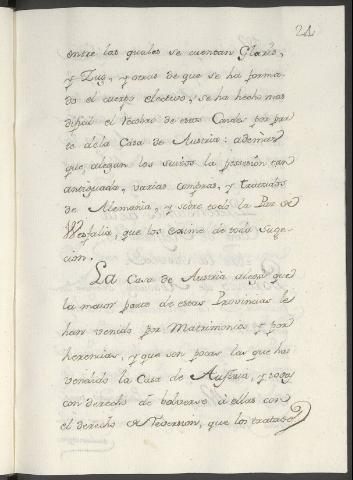 24
entre los quales se cuentan Glaris,
y Zug, y otros de que se ha forma-
do el cuerpo electivo, se ha hecho mas
dificil el recobro de estos Condes por par-
te dela Casa de Austria: ademas
que, alegan los suizos la possession tan
antiguada, varias compras, y tratados
de Alemania, y sobre todo la Paz de
Wesfalia, que los exime de toda suge-
cion.
La Casa de Austria alega que
la maior parte de estas Provincias le
han venido por Matrimonios y por
herencias, y que son pocas las que has
vendido la Casa de Austria, y todas
con derecho de bolverse à ellas con
el derecho de Reversion, que los tratados